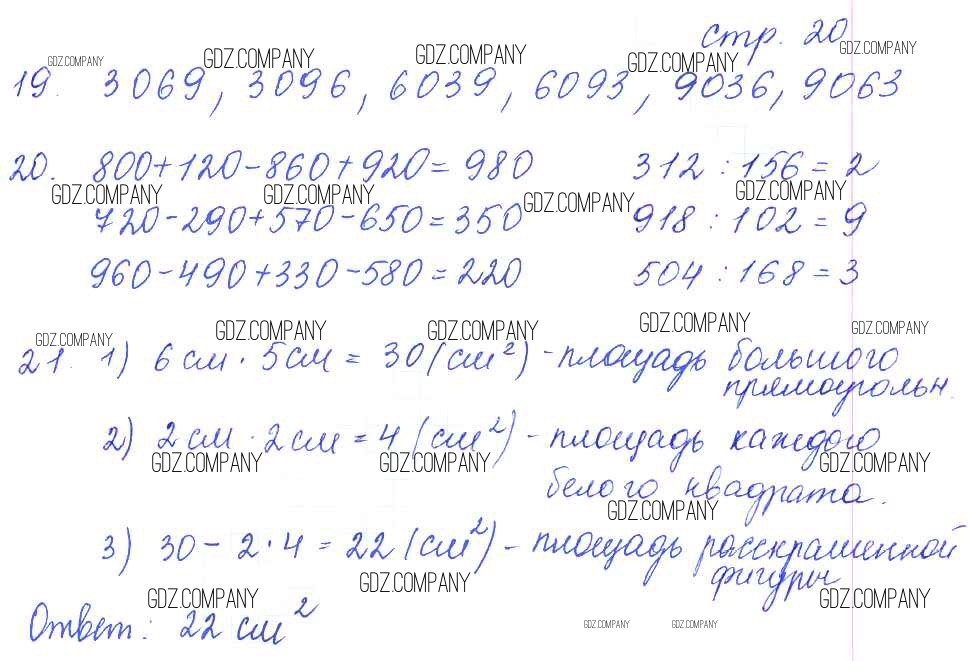 стр. 20
19. 3069, 3096, 6039, 6093, 9036, 9063
20. 800+120-860+920=980 312 : 156 = 2
720-290+570-650=350 918 : 102 = 9
960-490+330-580=220 504 : 168 = 3
21. 1) 6 см · 5 см = 30 (см²) - площадь большого
прямоугольн.
2) 2 см · 2 см = 4 (см²) - площадь каждого
белого квадрата.
3) 30 - 2 · 4 = 22 (см²) - площадь расскрашенной
фигуры
Ответ: 22 см²
GDZ.COMPANY GDZ.COMPANY GDZ.COMPANY GDZ.COMPANY GDZ.COMPANY
GDZ.COMPANY GDZ.COMPANY GDZ.COMPANY GDZ.COMPANY
GDZ.COMPANY GDZ.COMPANY GDZ.COMPANY GDZ.COMPANY GDZ.COMPANY
GDZ.COMPANY GDZ.COMPANY GDZ.COMPANY
GDZ.COMPANY
GDZ.COMPANY GDZ.COMPANY GDZ.COMPANY
GDZ.COMPANY GDZ.COMPANY